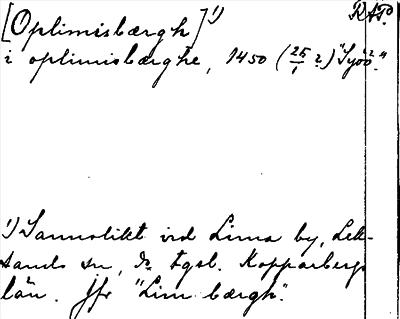 [Optimisbærgh]¹⁾ RAP.
i optimisbærghe, 1450 (25/1 2) "Syöö²."
¹⁾ Sannolikt vid Lima by, Lek-
sands sn, ds tgsl. Kopparbergs
län. Jfr "Lim bærgh".